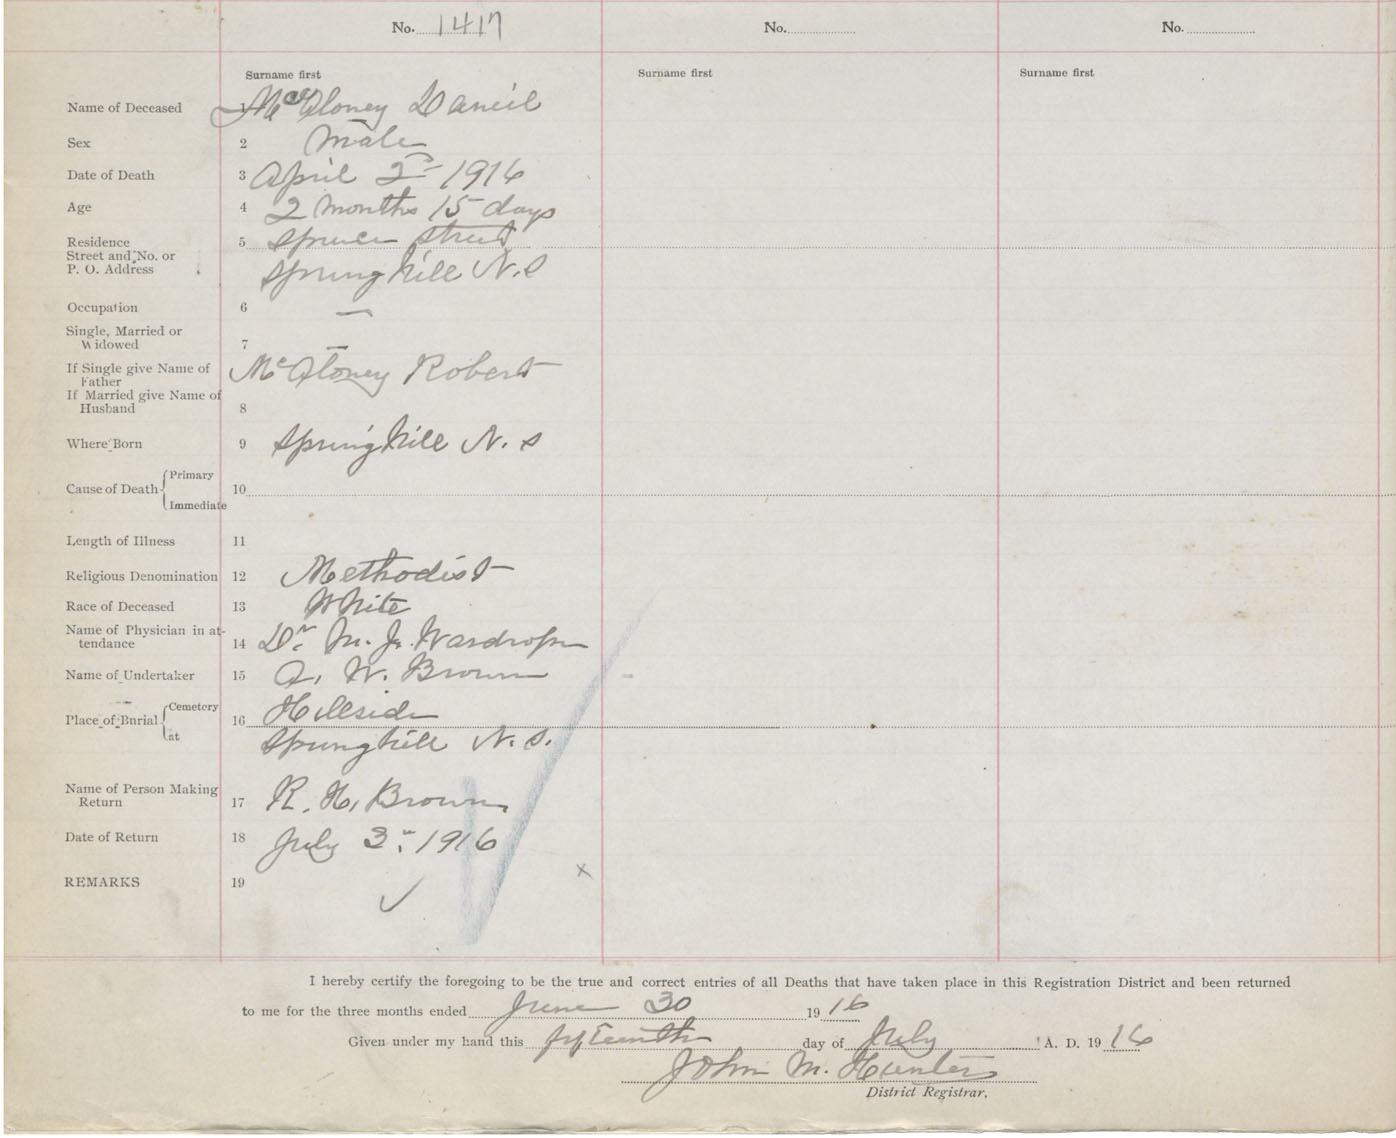 No. 1417 No. No.
Surname first Surname first Surname first
Name of Deceased 1 McAloney Daneil
Sex 2 Male
Date of Death 3 April 2nd 1916
Age 4 2 Months 15 days
Residence 5 Spruce Street
Street and No. or
P. O. Address Springhill N.S
Occupation 6 —
Single, Married or
Widowed 7 —
If Single give Name of McAloney Robert
Father
If Married give Name of
Husband 8
Where Born 9 Springhill N.S
Primary
Cause of Death 10
Immediate
Length of Illness 11
Religious Denomination 12 Methodist
Race of Deceased 13 White
Name of Physician in at-
tendance 14 Dr. M. J. Wardrope
Name of Undertaker 15 A. W. Brown
Cemetery Hillside
Place of Burial 16
at Springhill N.S.
Name of Person Making
Return 17 R. H. Brown
Date of Return 18 July 3rd 1916
REMARKS 19
I hereby certify the foregoing to be the true and correct entries of all Deaths that have taken place in this Registration District and been returned
to me for the three months ended June 30 1916
Given under my hand this fifteenth day of July A. D. 1916
John M. Hunter
District Registrar.